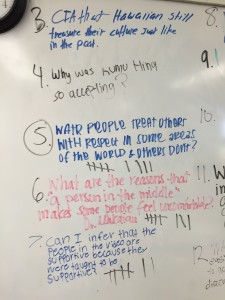 3. CIA that Hawaiian still
treasure their culture just like
in the past.
4. Why was Kumu Hina
so accepting?
5. WHY PEOPLE TREAT OTHERS
WITH RESPECT IN SOME AREAS
OF THE WORLD & OTHERS DON'T?
6. What are the reasons that
"a person in the middle"
makes some people feel uncomfortable?
7. Can I infer that the
people in the video are
supportive because they
were taught to be
supportive?
8.
9.
10.
11. W
in
12. W